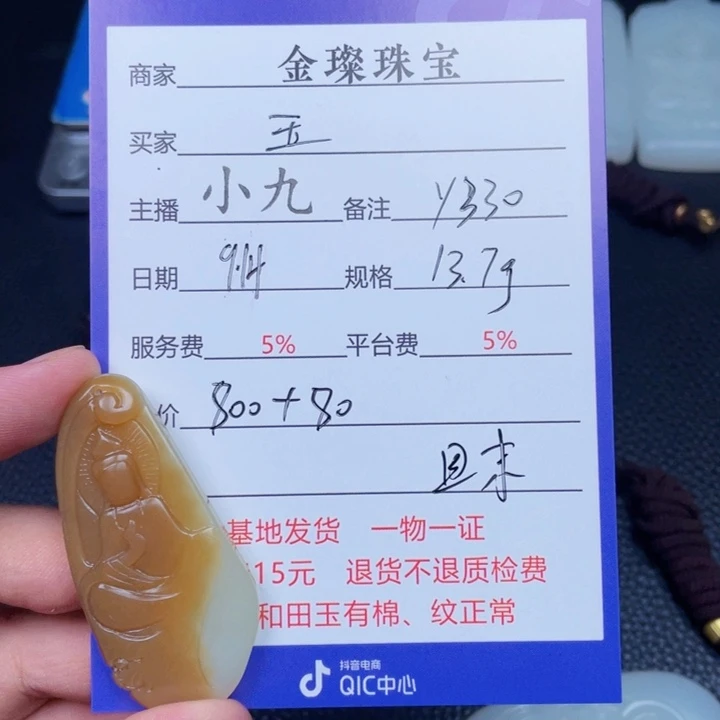 商家 金璨珠宝
买家 玉
主播 小九 备注 y330
日期 9.14 规格 13.7g
服务费 5% 平台费 5%
价 800+80
且末
基地发货 一物一证
15元 退货不退质检费
和田玉有棉、纹正常
抖音电商
QIC中心